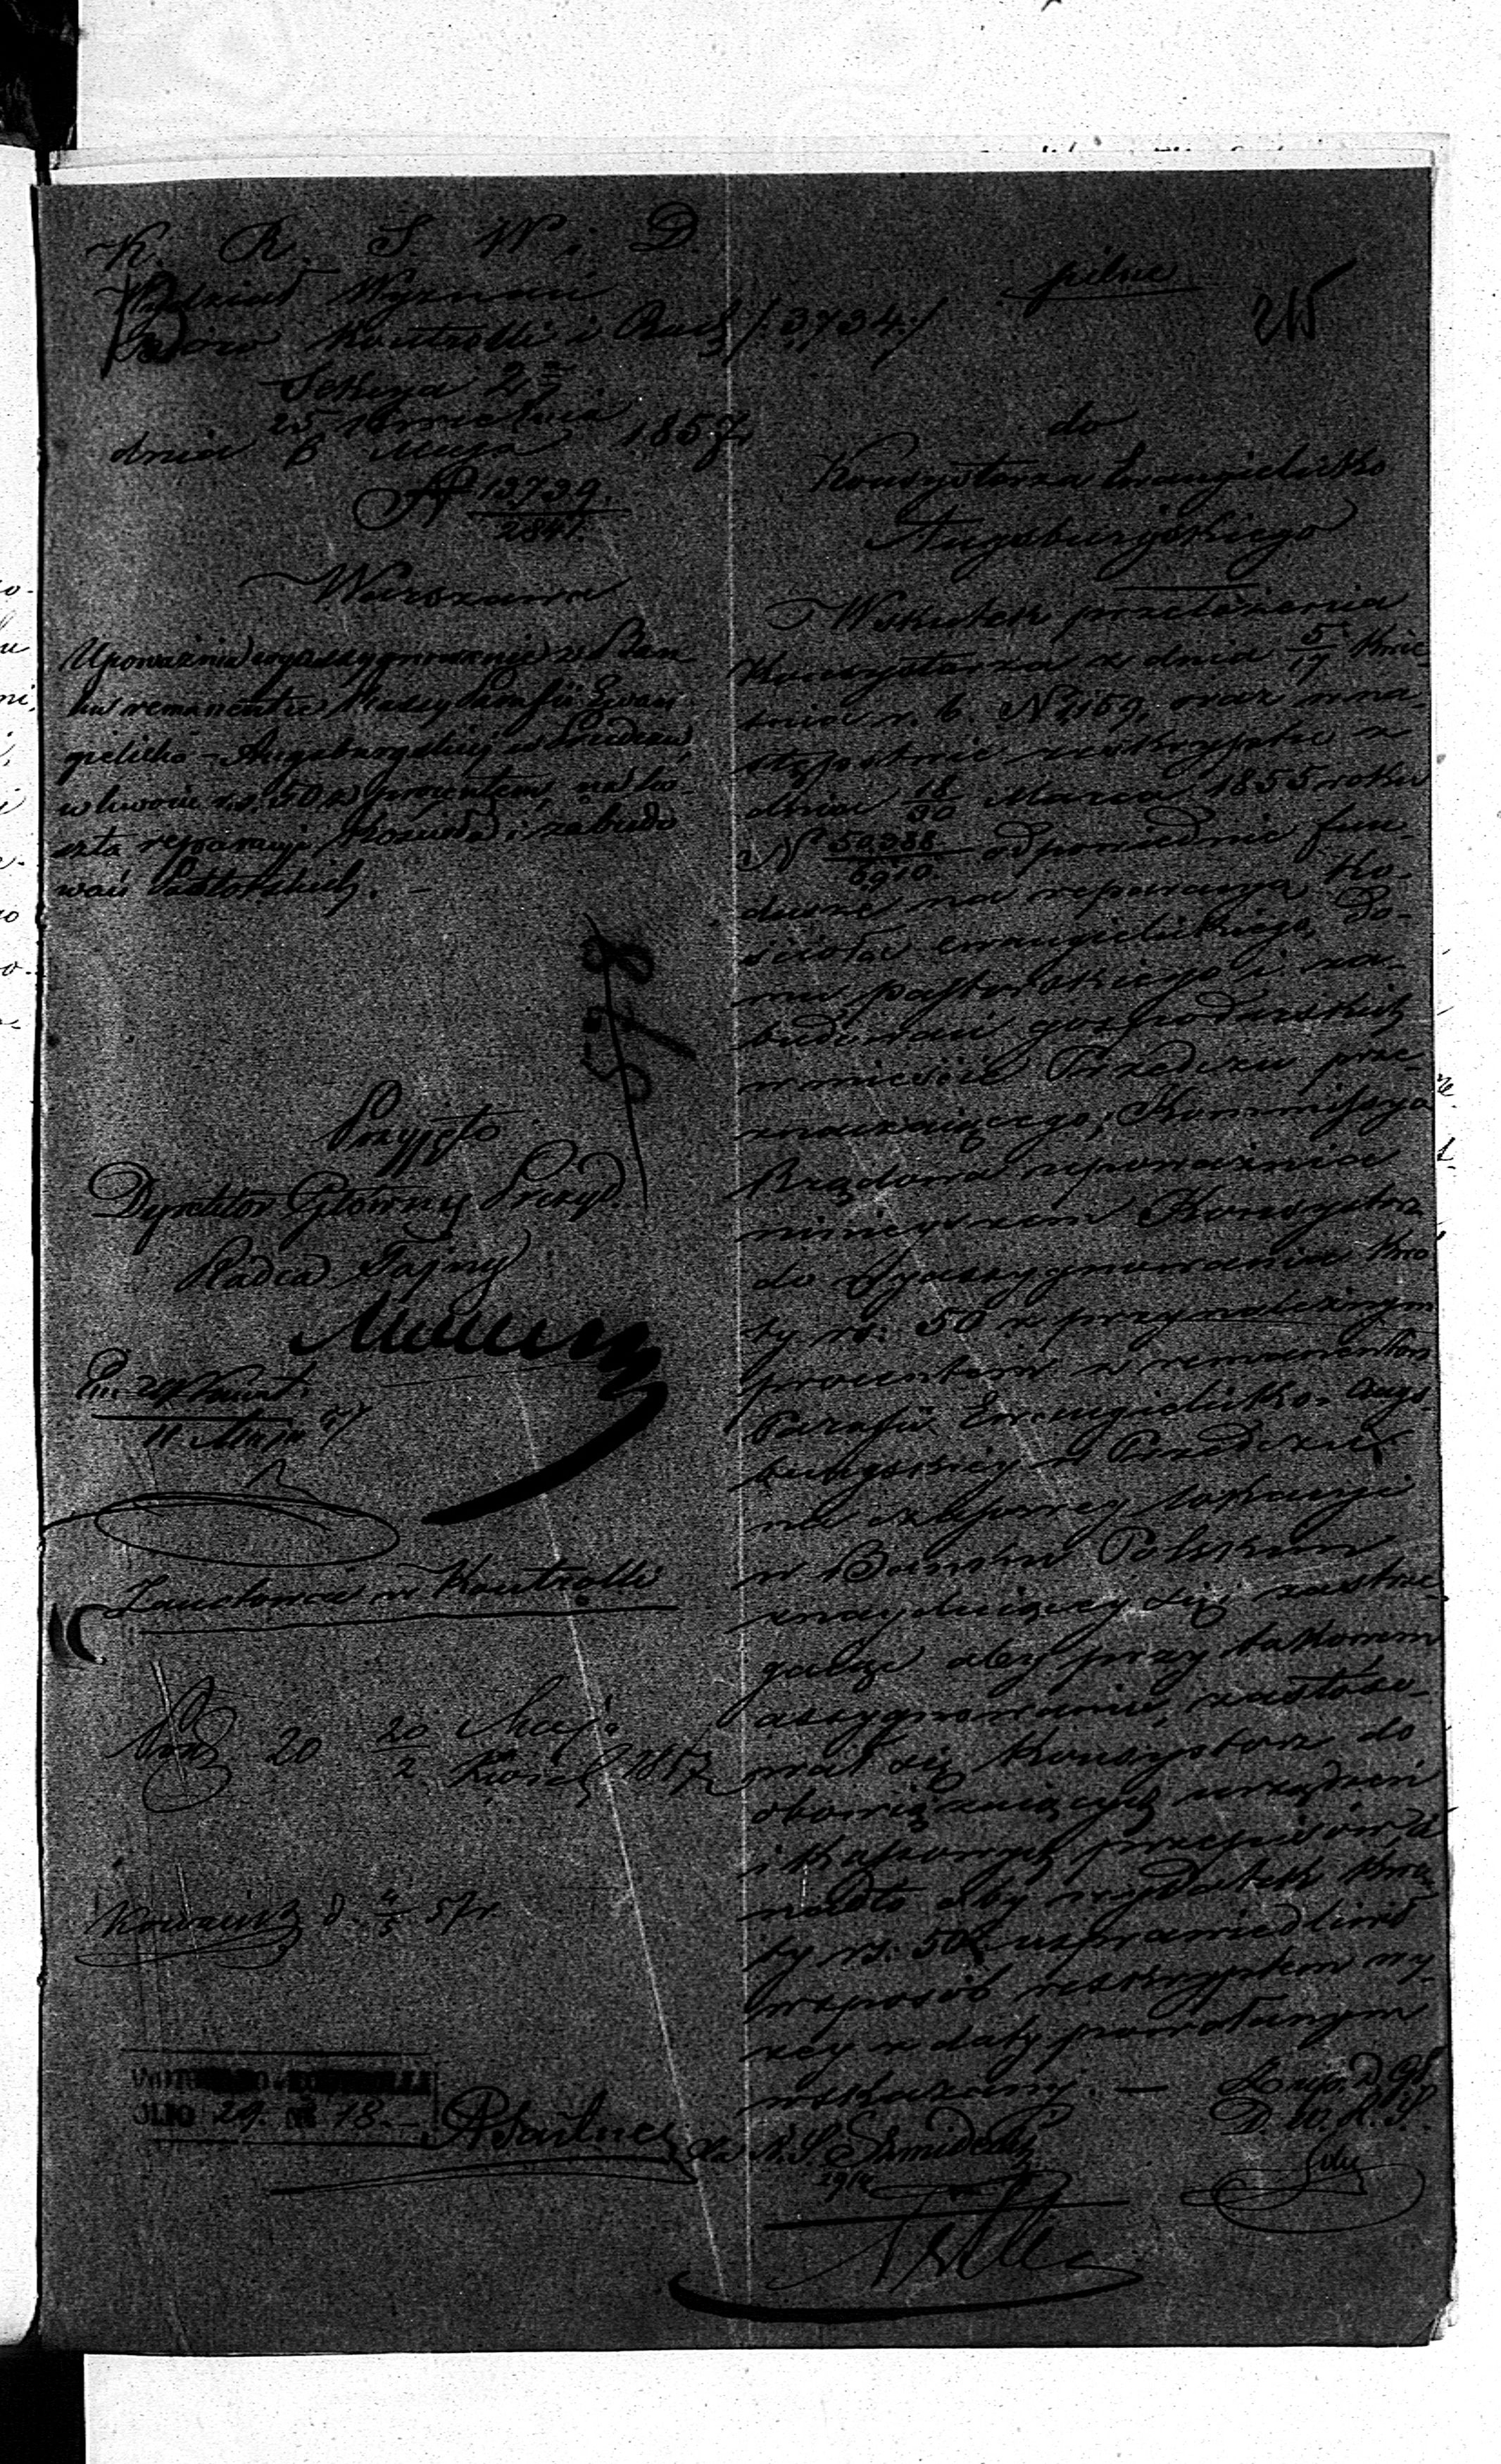 K. R. S. W. i D.
Wydział Wyznań
Biuro Kontrolli i Rach /:3734:/
Sekcya 2ga
25 Kwietnia
dnia 6 Maja 1857
N 13739.
2841.
Warszawa
Upoważnia wyassygnowanie z Ban
ku remanentu Massy Parafii Ewan
gielicko-Augsburgskiej w Przedczu,
w kwocie rs. 50 z procentem, na ko-
szta reparacyi Kościoła i zabudo
wań Pastorskich. —
578
Przyjęto
Dyrektor Główny Prezyd.
Radca Tajny
11 Maja 57
Zanotować w Kontrolli
20 20 Maja
2 1857
d. 4/5 57 r.
24. N 18. —
pilne
215
do
Konsystorza Ewangielicko
Augsburgskiego
W skutek przełożenia
Konsystorza z dnia 5/17 Kwie-
tnia r. b. N 1159, oraz w na-
stępstwie reskryptu z
dnia 18/30 Marca 1855 roku
N 50,938/6,910. odpowiednie fun-
dusze na reparacyą Ko-
ścioła ewangielickiego, Do-
mu pastorskiego i za-
budowań gospodarskich
w mieście Przedczu prze-
znaczającego; Kommissya
Rządowa upoważnia
niniejszem Konsystorz
do wyassygnowania kwo
ty rs: 50 z przynależnym
procentem z remanentów
Parafii Ewangielicko-Augs
burgskiej w Przedczu
na lokacyi
w Banku Polskim
znajdujący się; zastrze
gając aby przy takowem
assygnowaniu, zastoso-
wał się Konsystorz do
obowiązujących urządzeń
i Kassowych przepisów, a
nadto aby wydatek kwo
ty rs: 50 usprawiedliwił
w sposób reskryptem wy-
żej z daty powołanym
wskazany. —